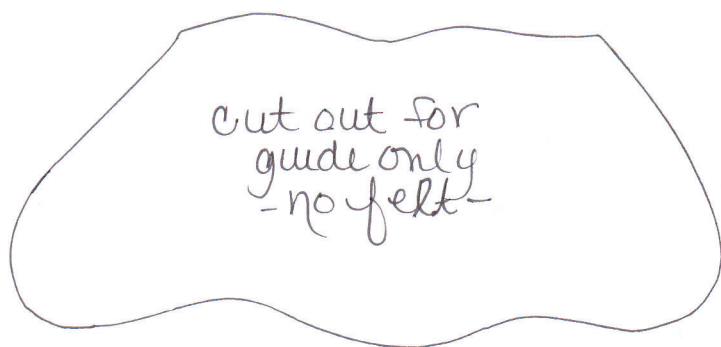 cut out for
guide only
-no felt-